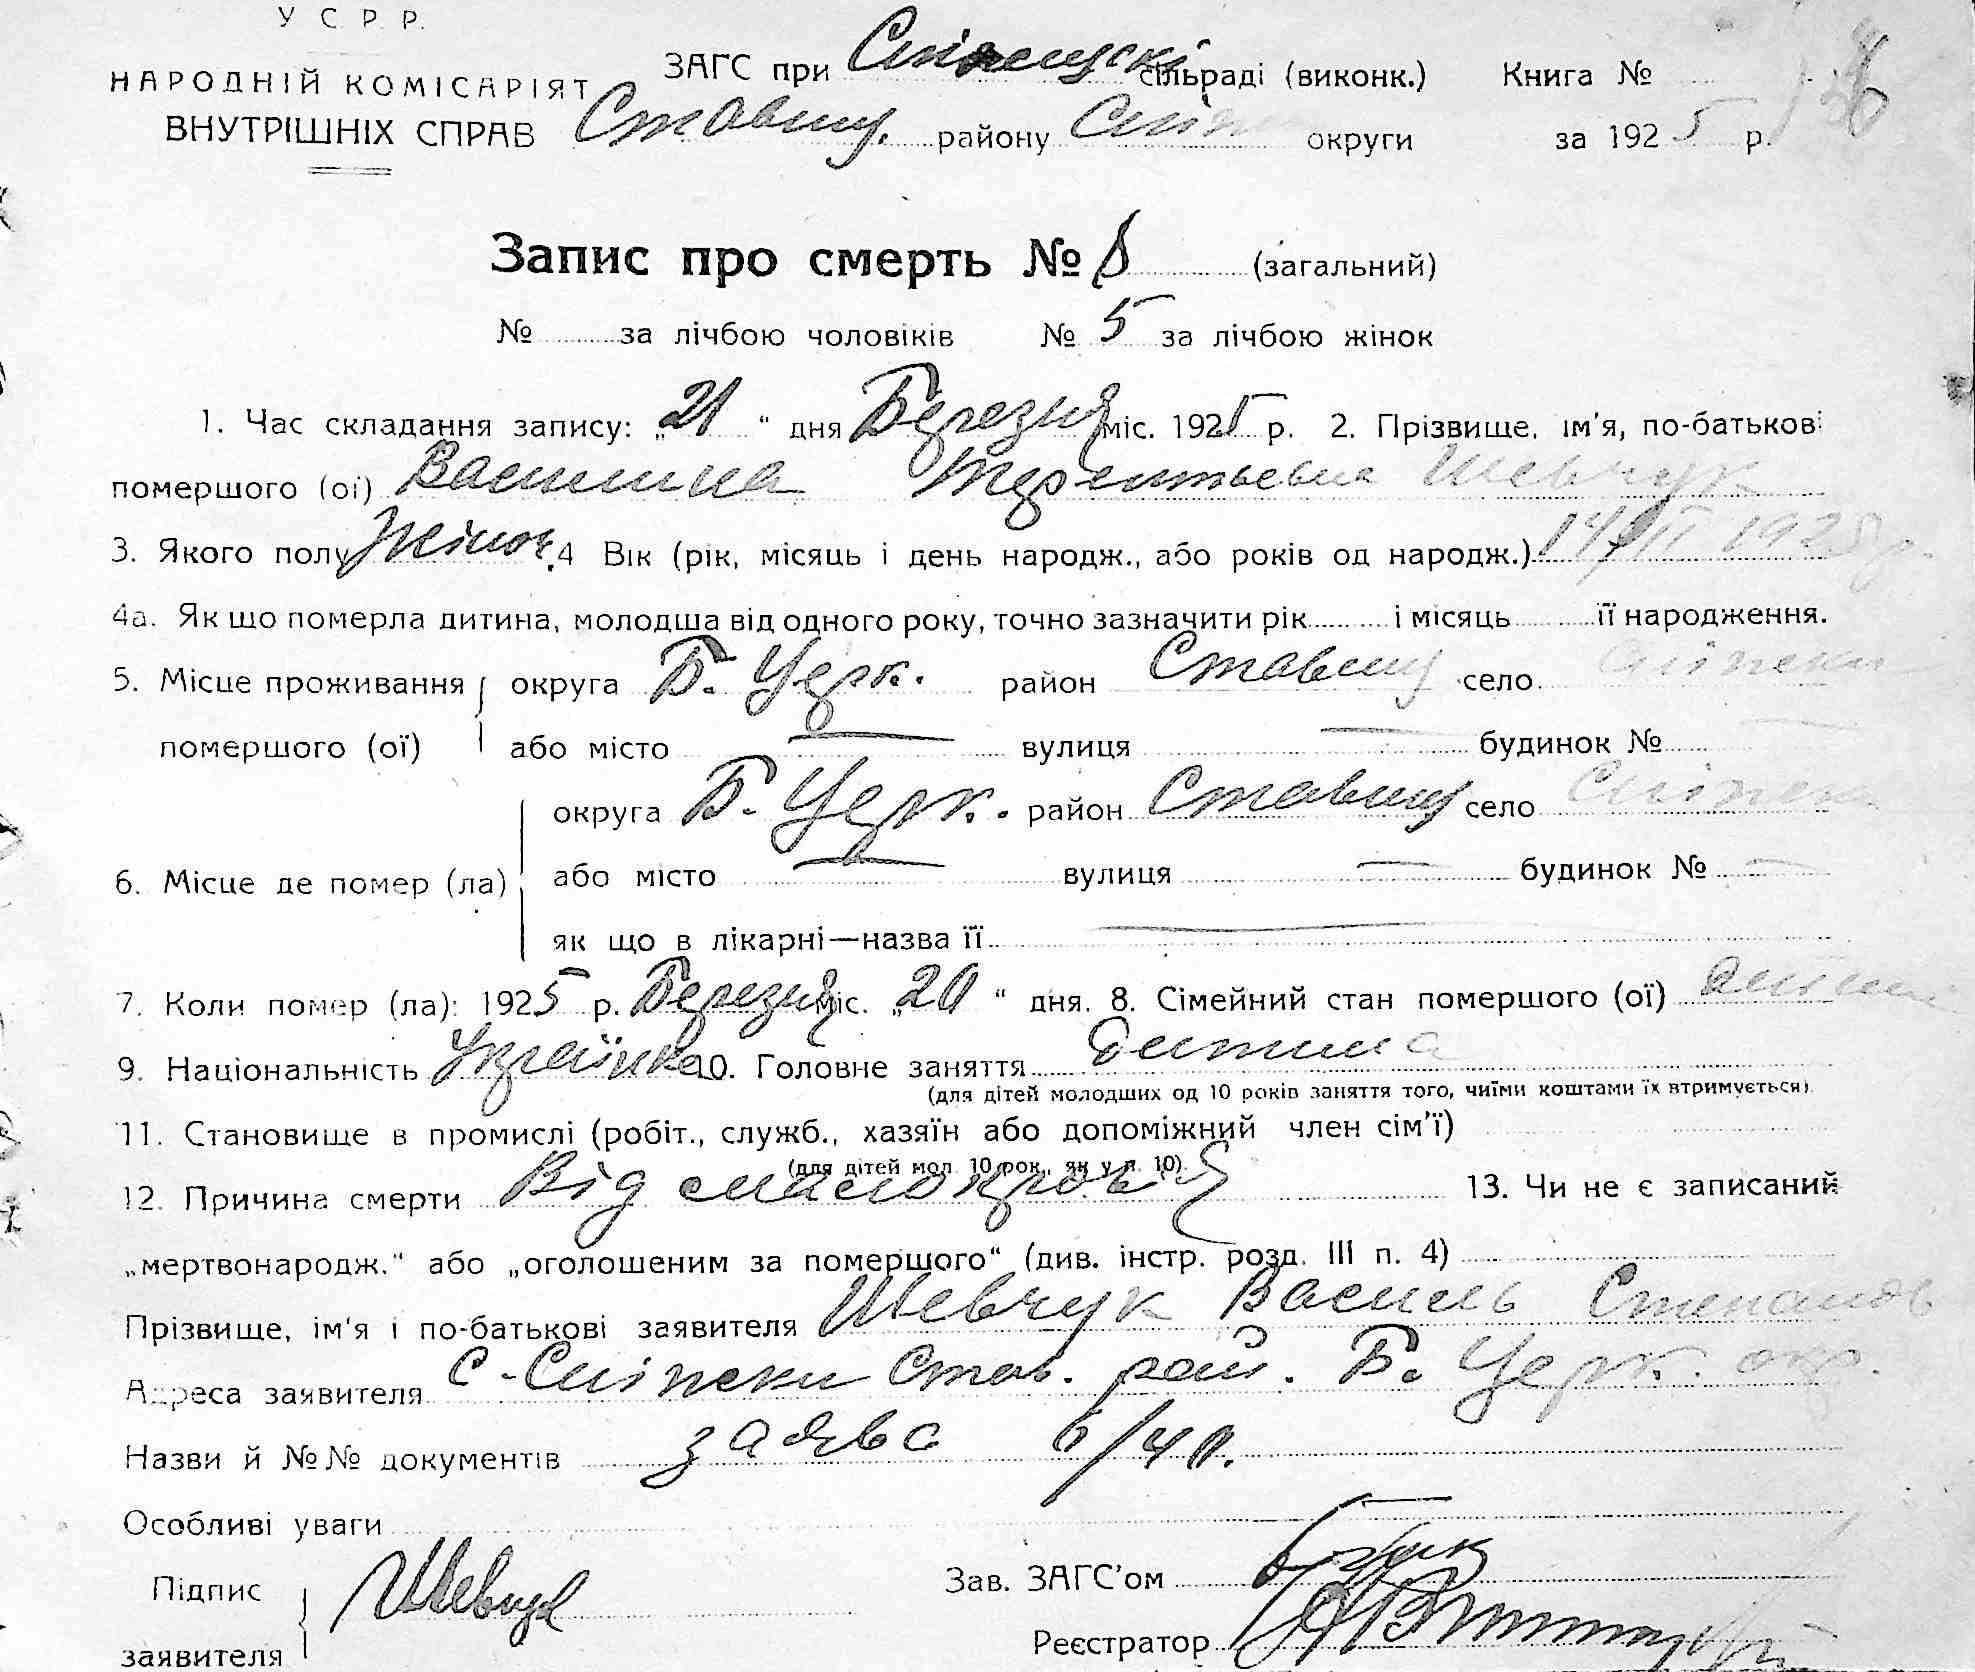 У С Р Р.
НАРОДНІЙ КОМІСАРІЯТ ЗАГС при сільраді (виконк.) Книга №
ВНУТРІШНІХ СПРАВ Ставищ. району Сліп округи за 1925 р.
Запис про смерть № 8 (загальний)
№ за лічбою чоловіків № 5 за лічбою жінок
1. Час складання запису: „21" дня Березня міс. 1925 р. 2. Прізвище, ім'я, по-батькові
помершого (ої) Василина Терентьевна Шевчук
3. Якого полу Жіноч. 4 Вік (рік, місяць і день народж., або років од народж.) 14
4а. Як що померла дитина, молодша від одного року, точно зазначити рік і місяць її народження.
5. Місце проживання округа Б. Церк. район Ставищ село Сліпеки
помершого (ої) або місто — вулиця — будинок №
округа Б. Церк. район Ставищ село Сліпеки
6. Місце де помер (ла) або місто — вулиця — будинок № —
як що в лікарні—назва її —
7. Коли помер (ла): 1925 р. Березня міс. „20" дня. 8. Сімейний стан помершого (ої) Дитина
9. Національність Українка 10. Головне заняття Дитина
(для дітей молодших од 10 років заняття того, чиїми коштами їх втримується).
11. Становище в промислі (робіт., служб., хазяїн або допоміжний член сім'ї)
(для дітей мол. 10 рок., як у п. 10).
12. Причина смерти Від малокровія 13. Чи не є записаний
„мертвонародж." або „оголошеним за помершого" (див. інстр. розд. III п. 4)
Прізвище, ім'я і по-батькові заявителя Шевчук Василь Степанов
Адреса заявителя с. Сліпеки Став. рай. Б. Церк. окр.
Назви й №№ документів заява
Особливі уваги
Підпис Шевчук Зав. ЗАГС'ом
заявителя Реєстратор